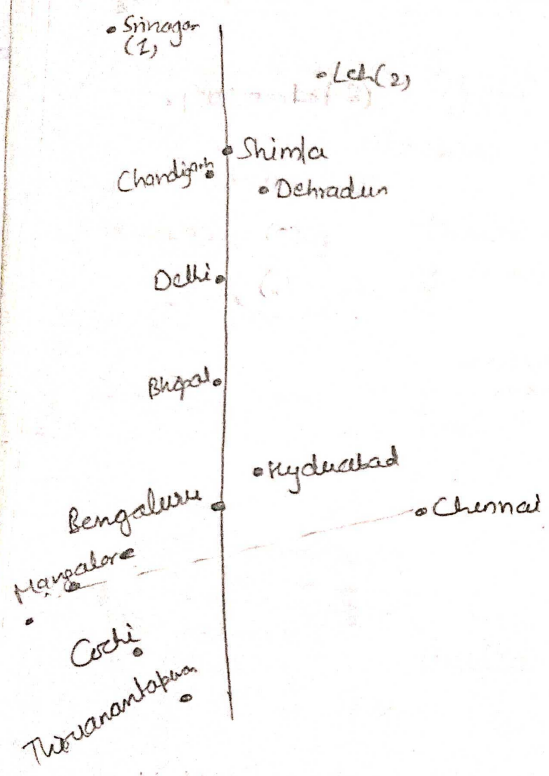 Srinagar
(1)
Leh(2)
Shimla
Chandigarh
Dehradun
Delhi
Bhopal
Hyderabad
Bengaluru
Chennai
Mangalore
Cochi
Thiruvanantapuram